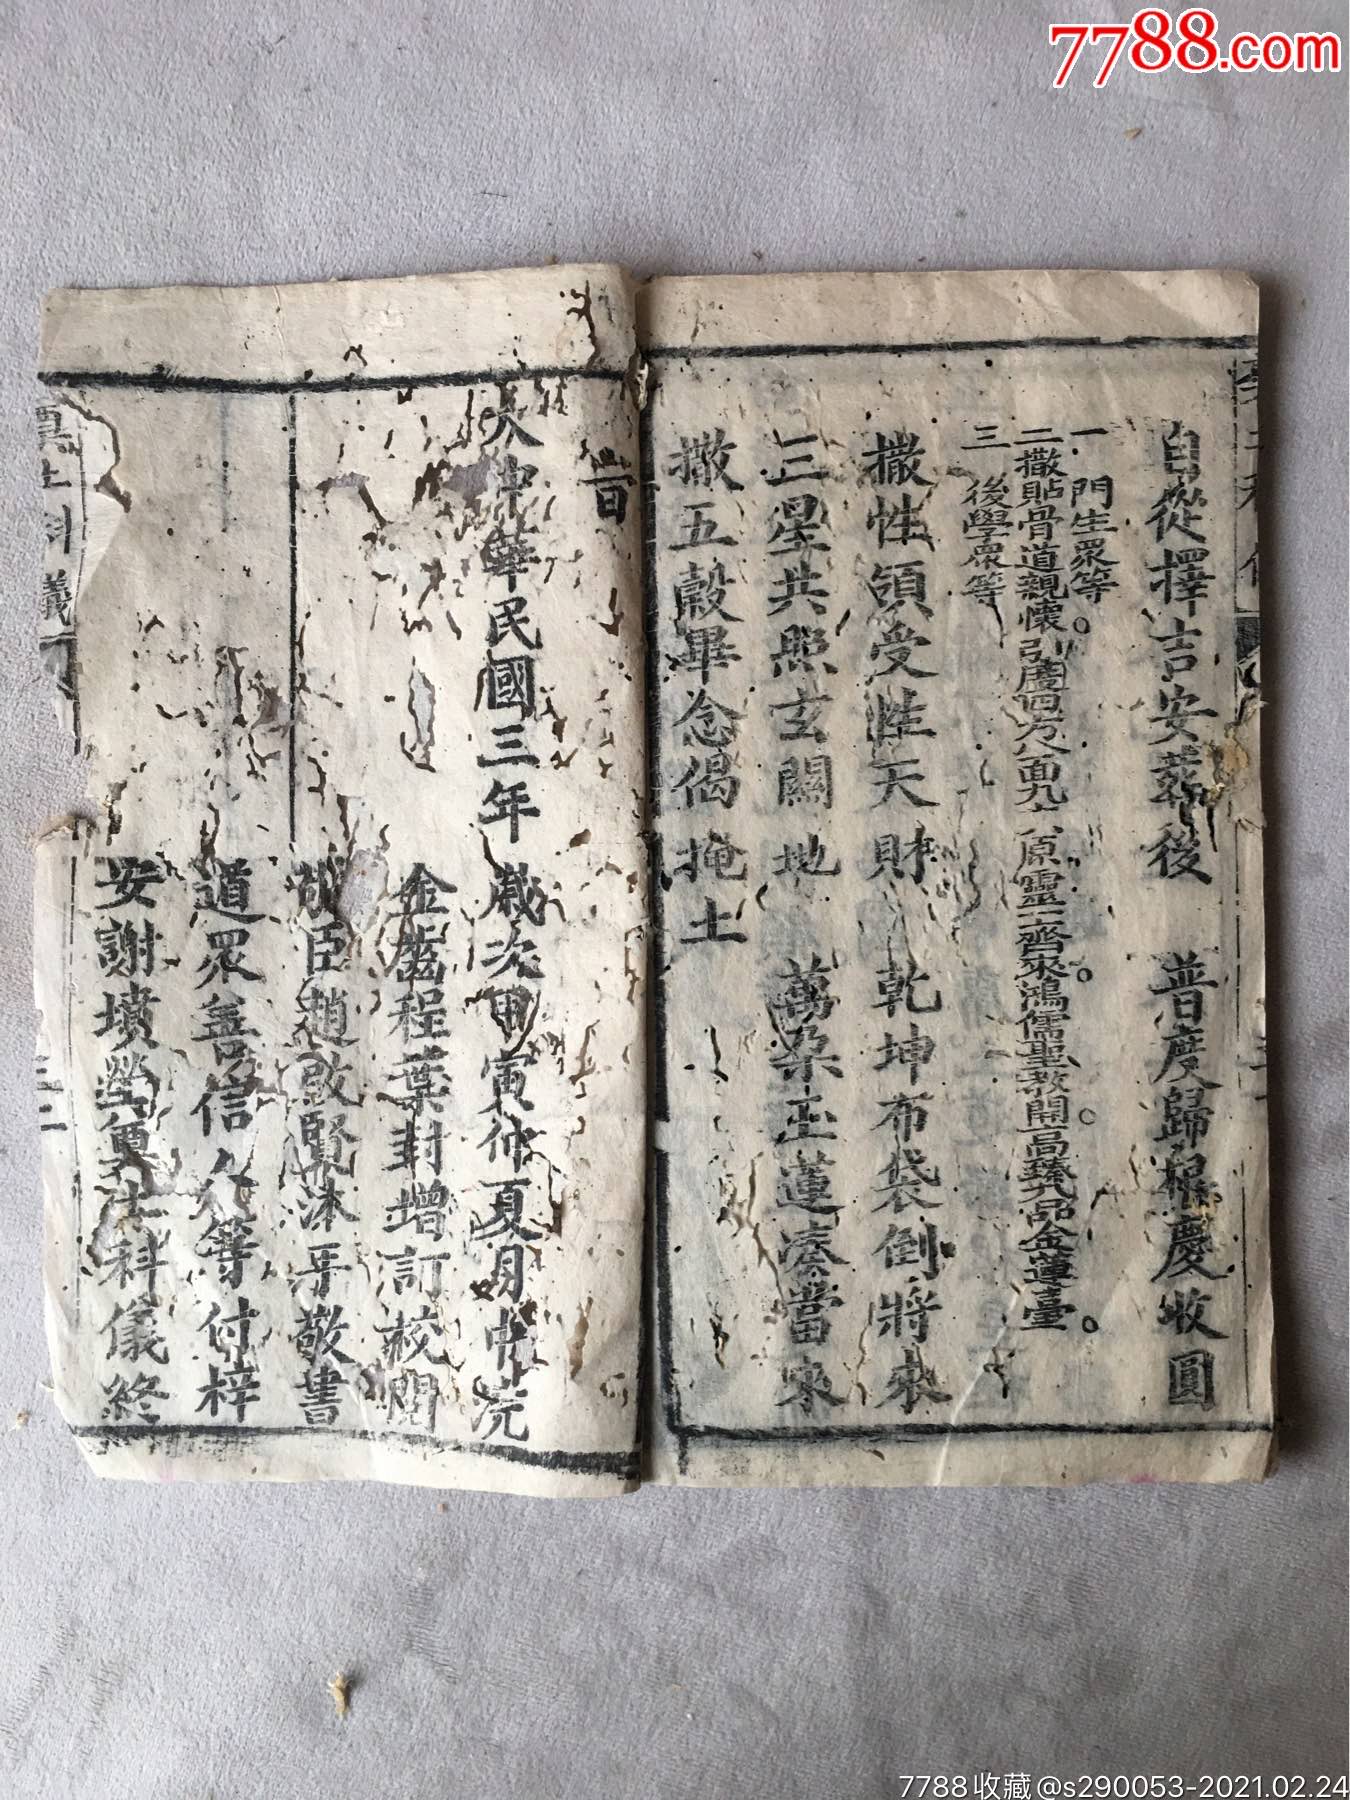 7788.com
自從擇吉安葬後 普度歸根慶收圓
一 門生眾等。
二撒貼骨道親懷引度四方八面九 原靈一齊來。鴻儒聖教開。高臻九品金蓮臺。
三 後學眾等
撒性領受性天財 乾坤布袋倒將來
三星共照玄關地 萬朵玉蓮湊當來
撒五穀畢念偈掩土
旨
大中華民國三年 歲次甲寅仲夏月中浣
金處程葉封增訂校閱
臣趙啟賢沐手敬書
道眾善信人等付梓
安謝墳塋奠土科儀終
奠土科儀
7788收藏@s290053-2021.02.24